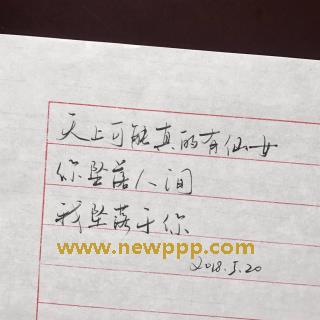 天上可能真的有仙女
你坠落人间
我坠落于你
www.newppp.com
2018.5.20